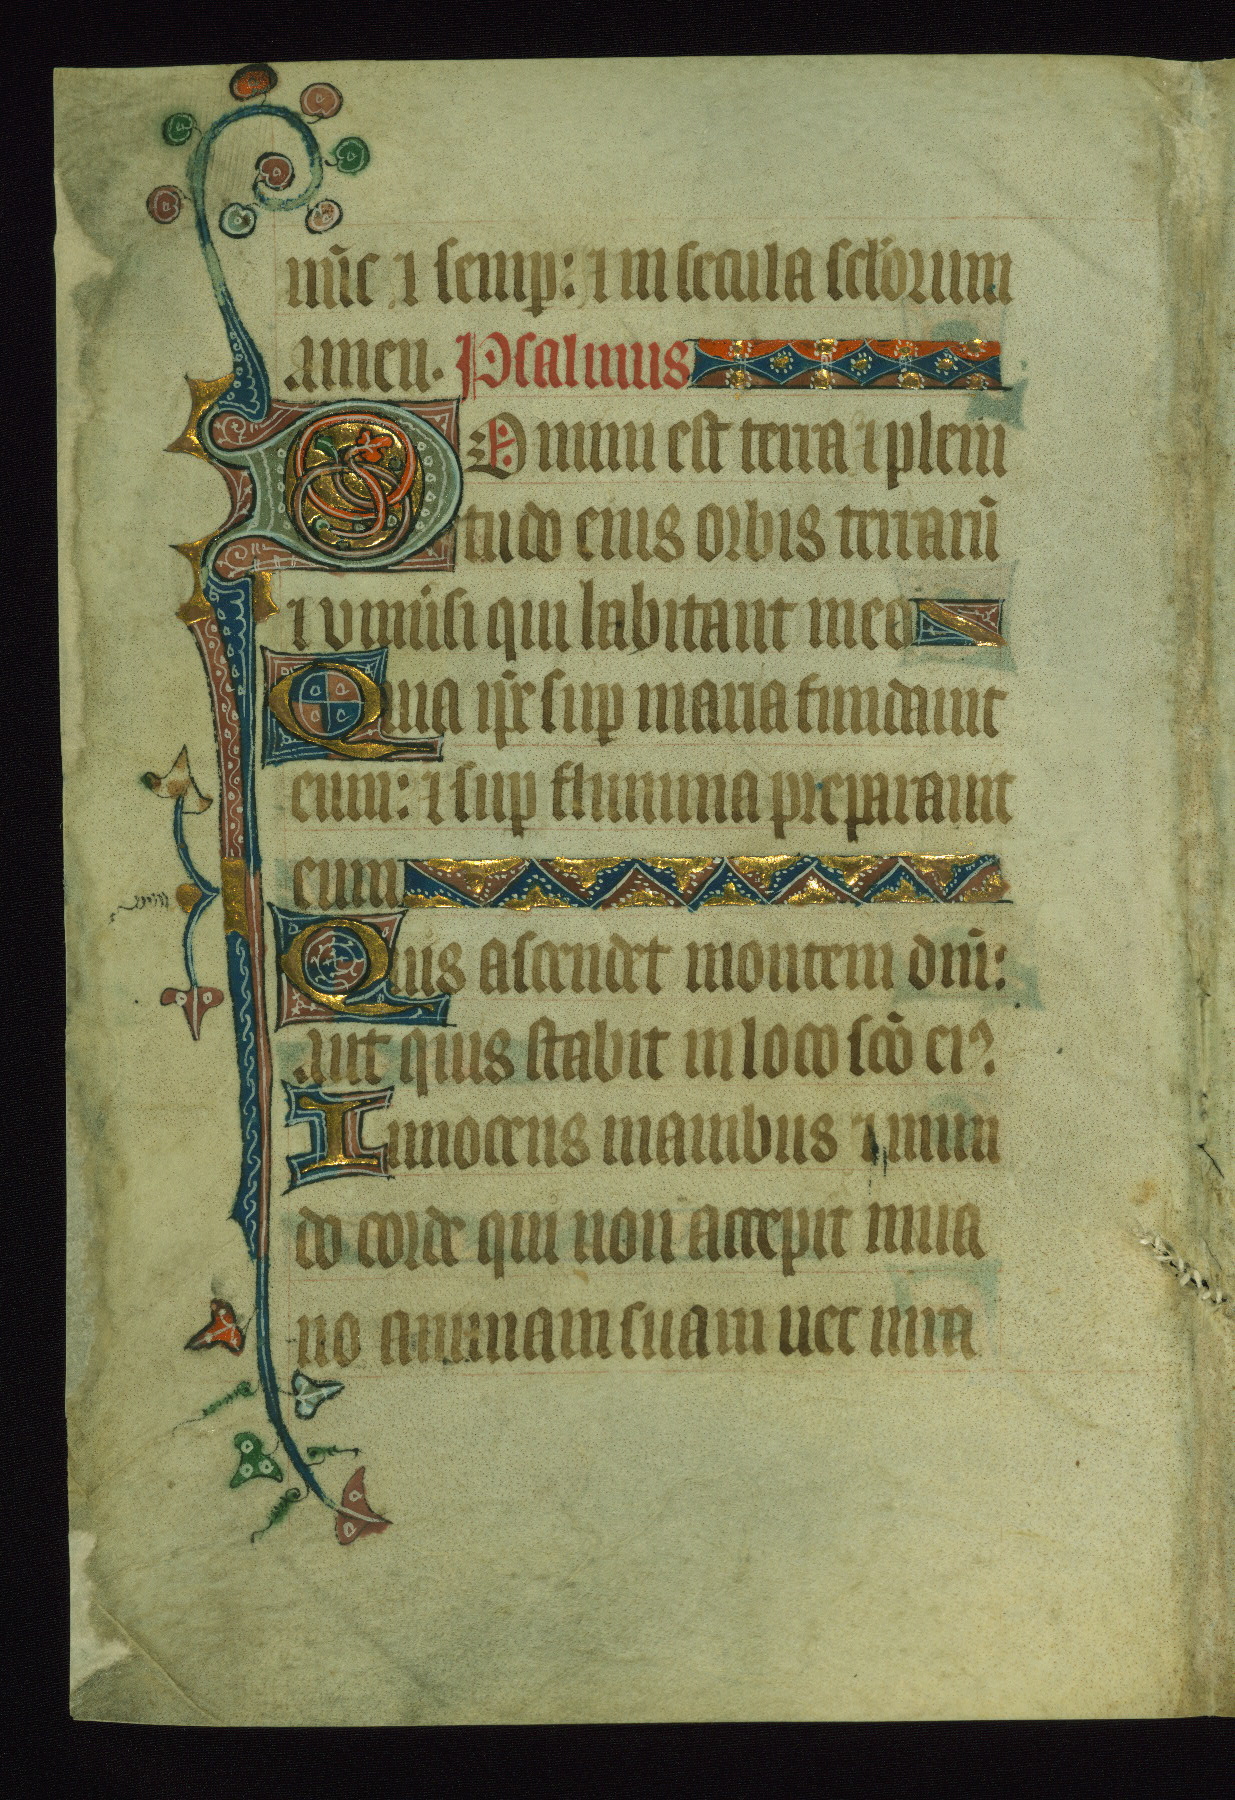 nūc ⁊ semp: ⁊ in secula sclōrum
amen. Psalmus
Domini est terra ⁊ pleni
tudo eius orbis terrarū
⁊ vniūsi qui habitant in eo
Quia ip̄e sup maria fundauit
eum: ⁊ sup flumina preparauit
eum
Quis ascendet montem dn̄i:
aut quis stabit in loco sc̄o ei⁹
Innocens manibus ⁊ mun
do corde qui non accepit in ua
no animam suam nec iura